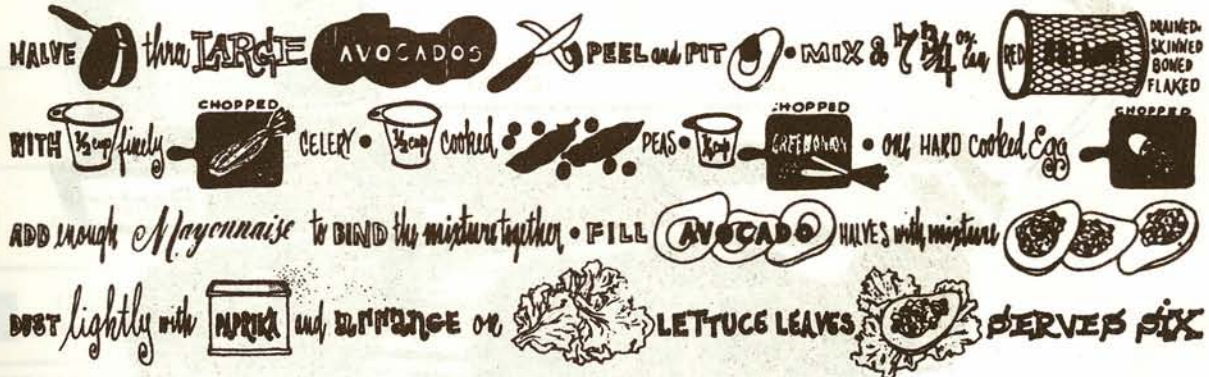 HALVE three LARGE AVOCADOS PEEL and PIT • MIX a 7 3/4 oz. Can RED SALMON DRAINED- SKINNED BONED FLAKED
WITH 1/2 cup finely CHOPPED CELERY • 1/2 cup cooked PEAS • 1/4 cup CHOPPED GREEN ONION • one HARD cooked Egg CHOPPED
ADD enough Mayonnaise to BIND the mixture together • FILL AVOCADO HALVES with mixture
DUST lightly with PAPRIKA and arrange on LETTUCE LEAVES SERVES SIX